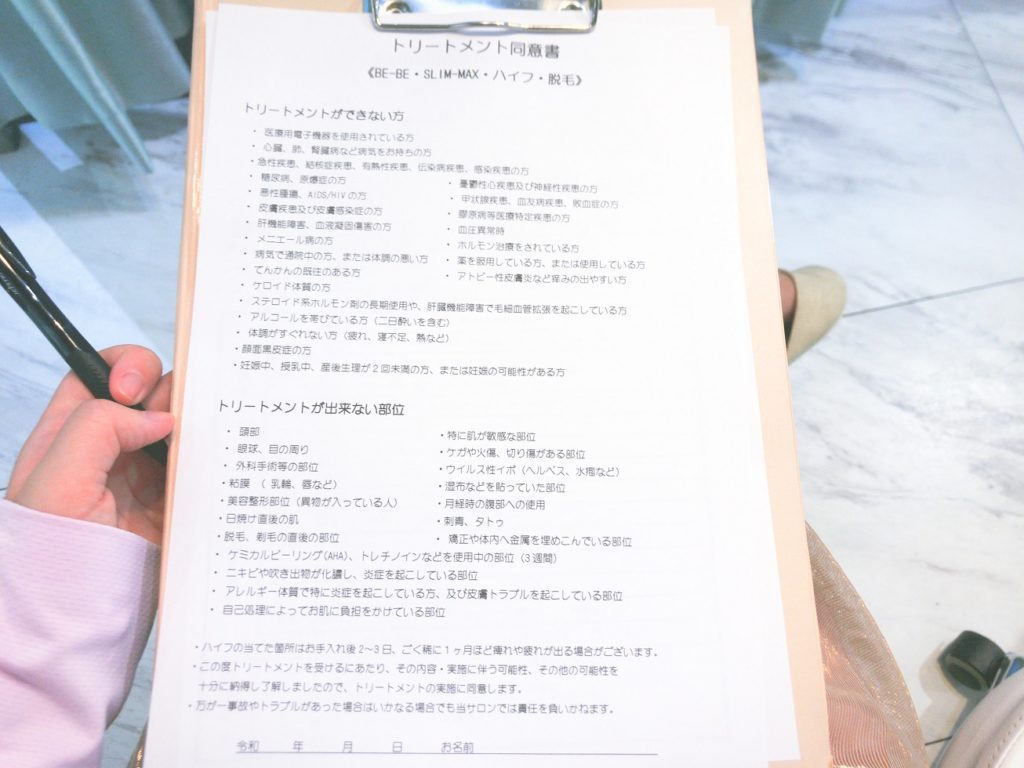 トリートメント同意書
《BE-BE・SLIM-MAX・ハイフ・脱毛》
トリートメントができない方
・ 医療用電子機器を使用されている方
・ 心臓、肺、腎臓病など病気をお持ちの方
・急性疾患、結核症疾患、有熱性疾患、伝染病疾患、感染疾患の方
・ 糖尿病、原爆症の方
・ 悪性腫瘍、AIDS/HIVの方
・ 皮膚疾患及び皮膚感染症の方
・ 肝機能障害、血液凝固傷害の方
・ メニエール病の方
・ 病気で通院中の方、または体調の悪い方
・ てんかんの既往のある方
・ ケロイド体質の方
・ 憂鬱性心疾患及び神経性疾患の方
・ 甲状腺疾患、血友病疾患、敗血症の方
・ 膠原病等医療特定疾患の方
・ 血圧異常時
・ ホルモン治療をされている方
・ 薬を服用している方、または使用している方
・ アトピー性皮膚炎など痒みの出やすい方
・ ステロイド系ホルモン剤の長期使用や、肝臓機能障害で毛細血管拡張を起こしている方
・ アルコールを帯びている方（二日酔いを含む）
・ 体調がすぐれない方（疲れ、寝不足、熱など）
・顔面黒皮症の方
・妊娠中、授乳中、産後生理が２回未満の方、または妊娠の可能性がある方
トリートメントが出来ない部位
・ 頭部
・ 眼球、目の周り
・ 外科手術等の部位
・粘膜 （ 乳輪、唇など）
・美容整形部位（異物が入っている人）
・日焼け直後の肌
・脱毛、剃毛の直後の部位
・特に肌が敏感な部位
・ケガや火傷、切り傷がある部位
・ウイルス性イボ（ヘルペス、水疱など）
・湿布などを貼っていた部位
・月経時の腹部への使用
・刺青、タトゥ
・ 矯正や体内へ金属を埋めこんでいる部位
・ ケミカルピーリング(AHA)、トレチノインなどを使用中の部位（3週間）
・ ニキビや吹き出物が化膿し、炎症を起こしている部位
・ アレルギー体質で特に炎症を起こしている方、及び皮膚トラブルを起こしている部位
・ 自己処理によってお肌に負担をかけている部位
・ハイフの当てた箇所はお手入れ後２～３日、ごく稀に１ヶ月ほど痺れや疲れが出る場合がございます。
・この度トリートメントを受けるにあたり、その内容・実施に伴う可能性、その他の可能性を
十分に納得し了解しましたので、トリートメントの実施に同意します。
・万が一事故やトラブルがあった場合はいかなる場合でも当サロンでは責任を負いかねます。
令和 年 月 日 お名前